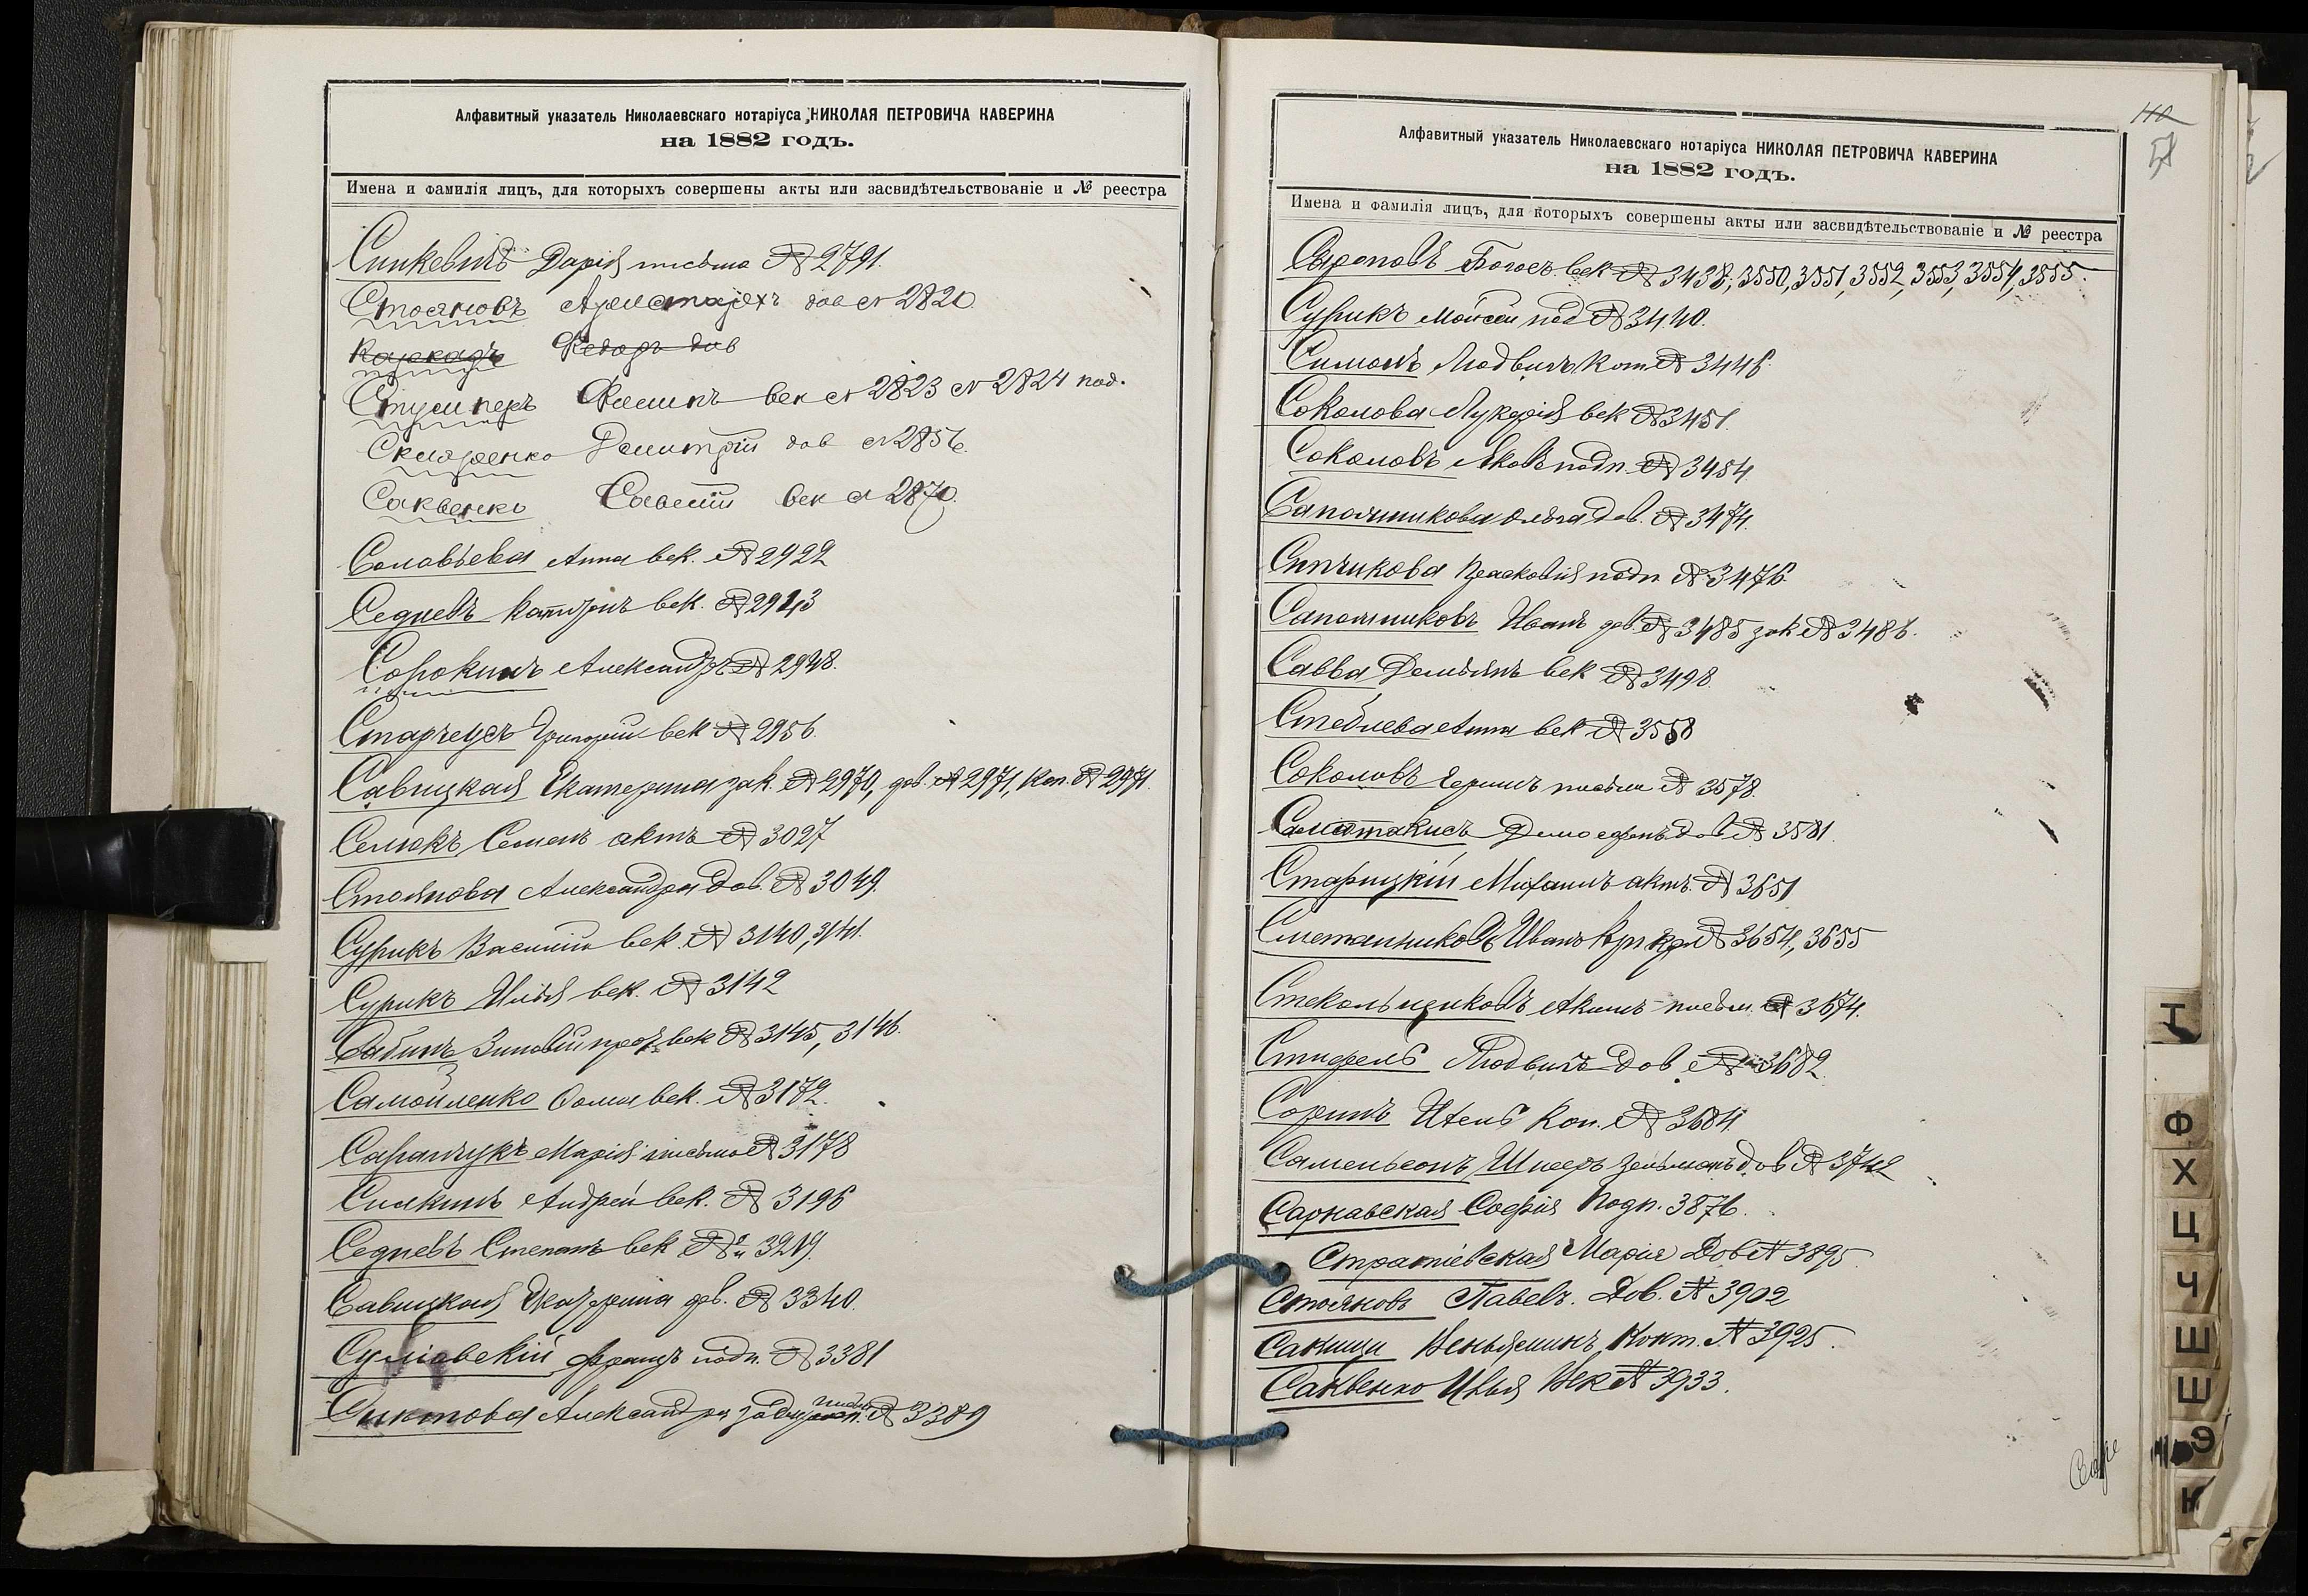 Алфавитный указатель Николаевскаго нотаріуса НИКОЛАЯ ПЕТРОВИЧА КАВЕРИНА
на 1882 годъ.
Имена и фамилія лицъ, для которыхъ совершены акты или засвидѣтельствованіе и № реестра
Синкевичъ Дарія письмо № 2791.
Стояновъ дов № 2820
Федоръ дов
век № 2823 № 2824 под.
Скляренко Дмитрій дов № 2856.
Саквенко Савелій век № 2870.
Соловьева Анна век. № 2922
Седневъ век. № 2943
Сорокинъ Александръ № 2948.
Старчеусъ Григорій век № 2956.
Савицкая Екатерина зак. № 2970, дов. № 2971, коп. № 2971.
Семенъ актъ № 3027
Стоянова Александра дов. № 3049.
Сурикъ Василій век. № 3140, 3141.
Сурикъ Илья век. № 3142
Сабинъ Зиновій век № 3145, 3146.
Самойленко Фома век. № 3172.
Марія письмо № 3178
Силкинъ Андрей век. № 3196
Седневъ Степанъ век № 3219.
Савицкая Екатерина дов. № 3340.
Францъ подп. № 3381
Александра № 3389
Алфавитный указатель Николаевскаго нотаріуса НИКОЛАЯ ПЕТРОВИЧА КАВЕРИНА
на 1882 годъ.
Имена и фамилія лицъ, для которыхъ совершены акты или засвидѣтельствованіе и № реестра
Богосъ век № 3438, 3550, 3551, 3552, 3553, 3554, 3555.
Сурикъ Мойсей под № 3440.
Симонъ Людвигъ кот № 3446.
Соколова Лукерія век № 3451.
Соколовъ Яковъ подп. № 3484.
Сапожникова Ольга дов. № 3474.
Прасковія подп № 3476
Сапожниковъ Иванъ дов. № 3485 зак № 3486.
Савва Демьянъ век № 3498.
Стеблева Анна век № 3558
Соколовъ письмо № 3578.
дов № 3581.
Старицкій Михаилъ актъ № 3651
Сметанниковъ Иванъ № 3654, 3655
Стекольщиковъ Акимъ письм. № 3674.
Стифель Людвигъ дов № 3682.
Соринъ коп. № 3684.
Самельсонъ Шнееръ Зельманъ дов № 3742
Сарнавская Софія подп. 3876.
Стратіевская Марія Дов № 3895
Стояновъ Павелъ. Дов. № 3902
Веньяминъ Конт. № 3925.
Саквенко Илья Век № 3933.
110
Т
Ф
Х
Ц
Ч
Ш
Ш
Э